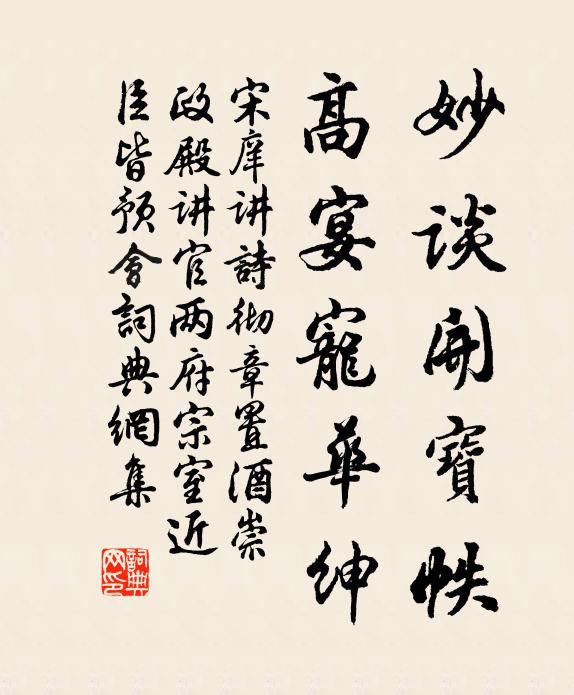 妙谈開寶帙
高宴寵華紳
宋庠讲詩彻章置酒崇
政殿讲官两府宗室近
臣皆预會詞典網集
詞典網印